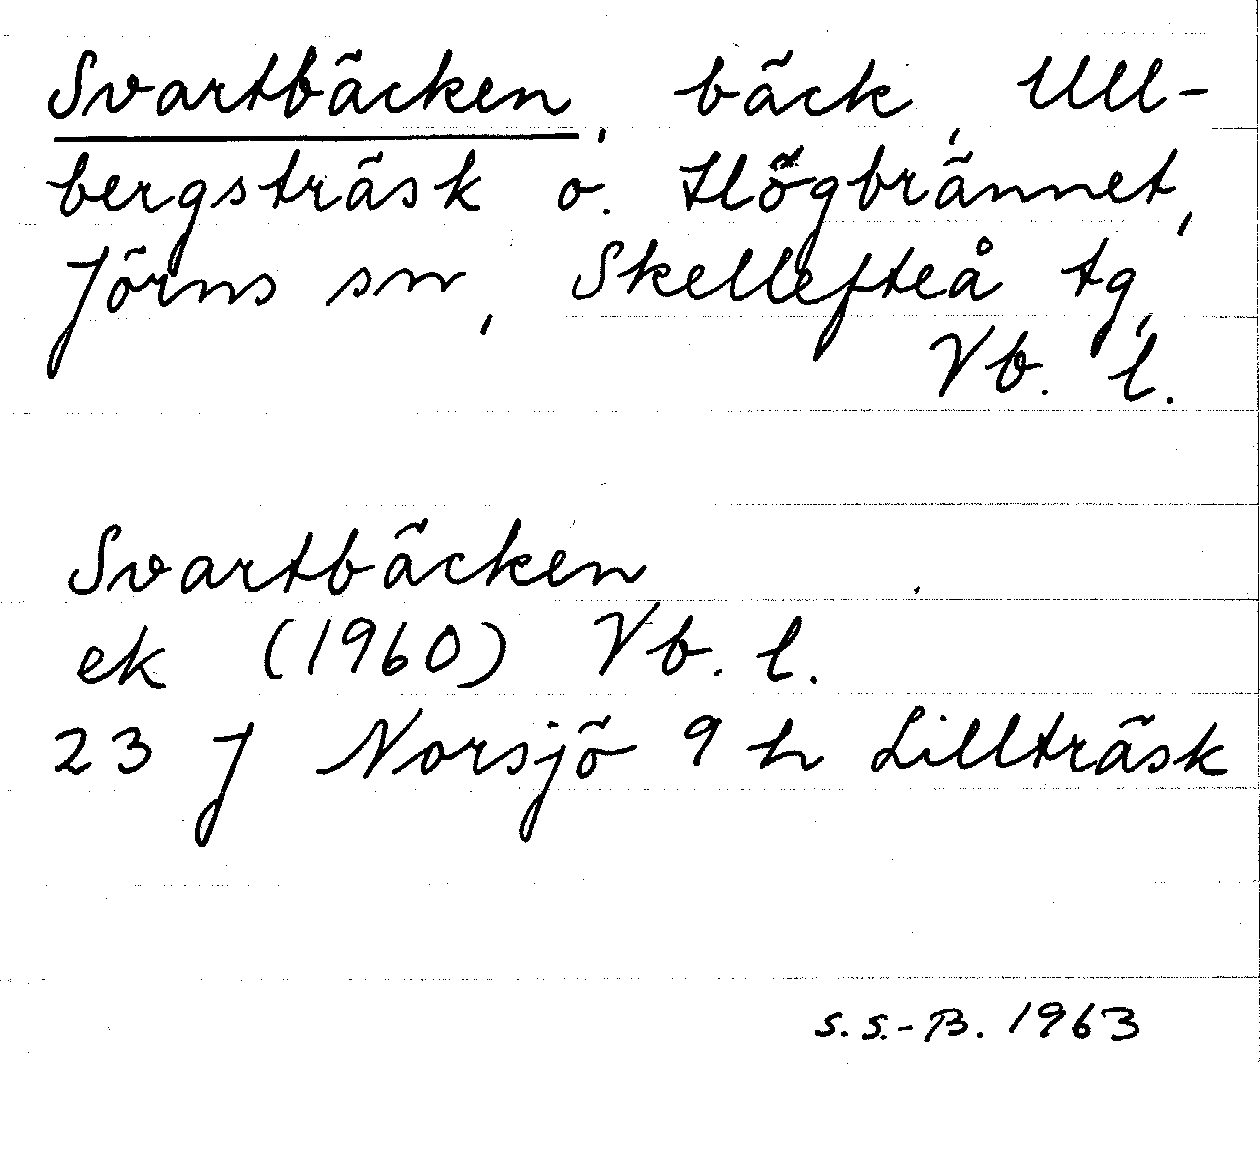 Svartbäcken, bäck, Ull-
bergsträsk o. Högbrännet,
Jörns sn, Skellefteå tg,
Vb. l.
Svartbäcken
ek (1960) Vb. l.
23 J Norsjö 9 h Lillträsk
S. S.-B. 1963